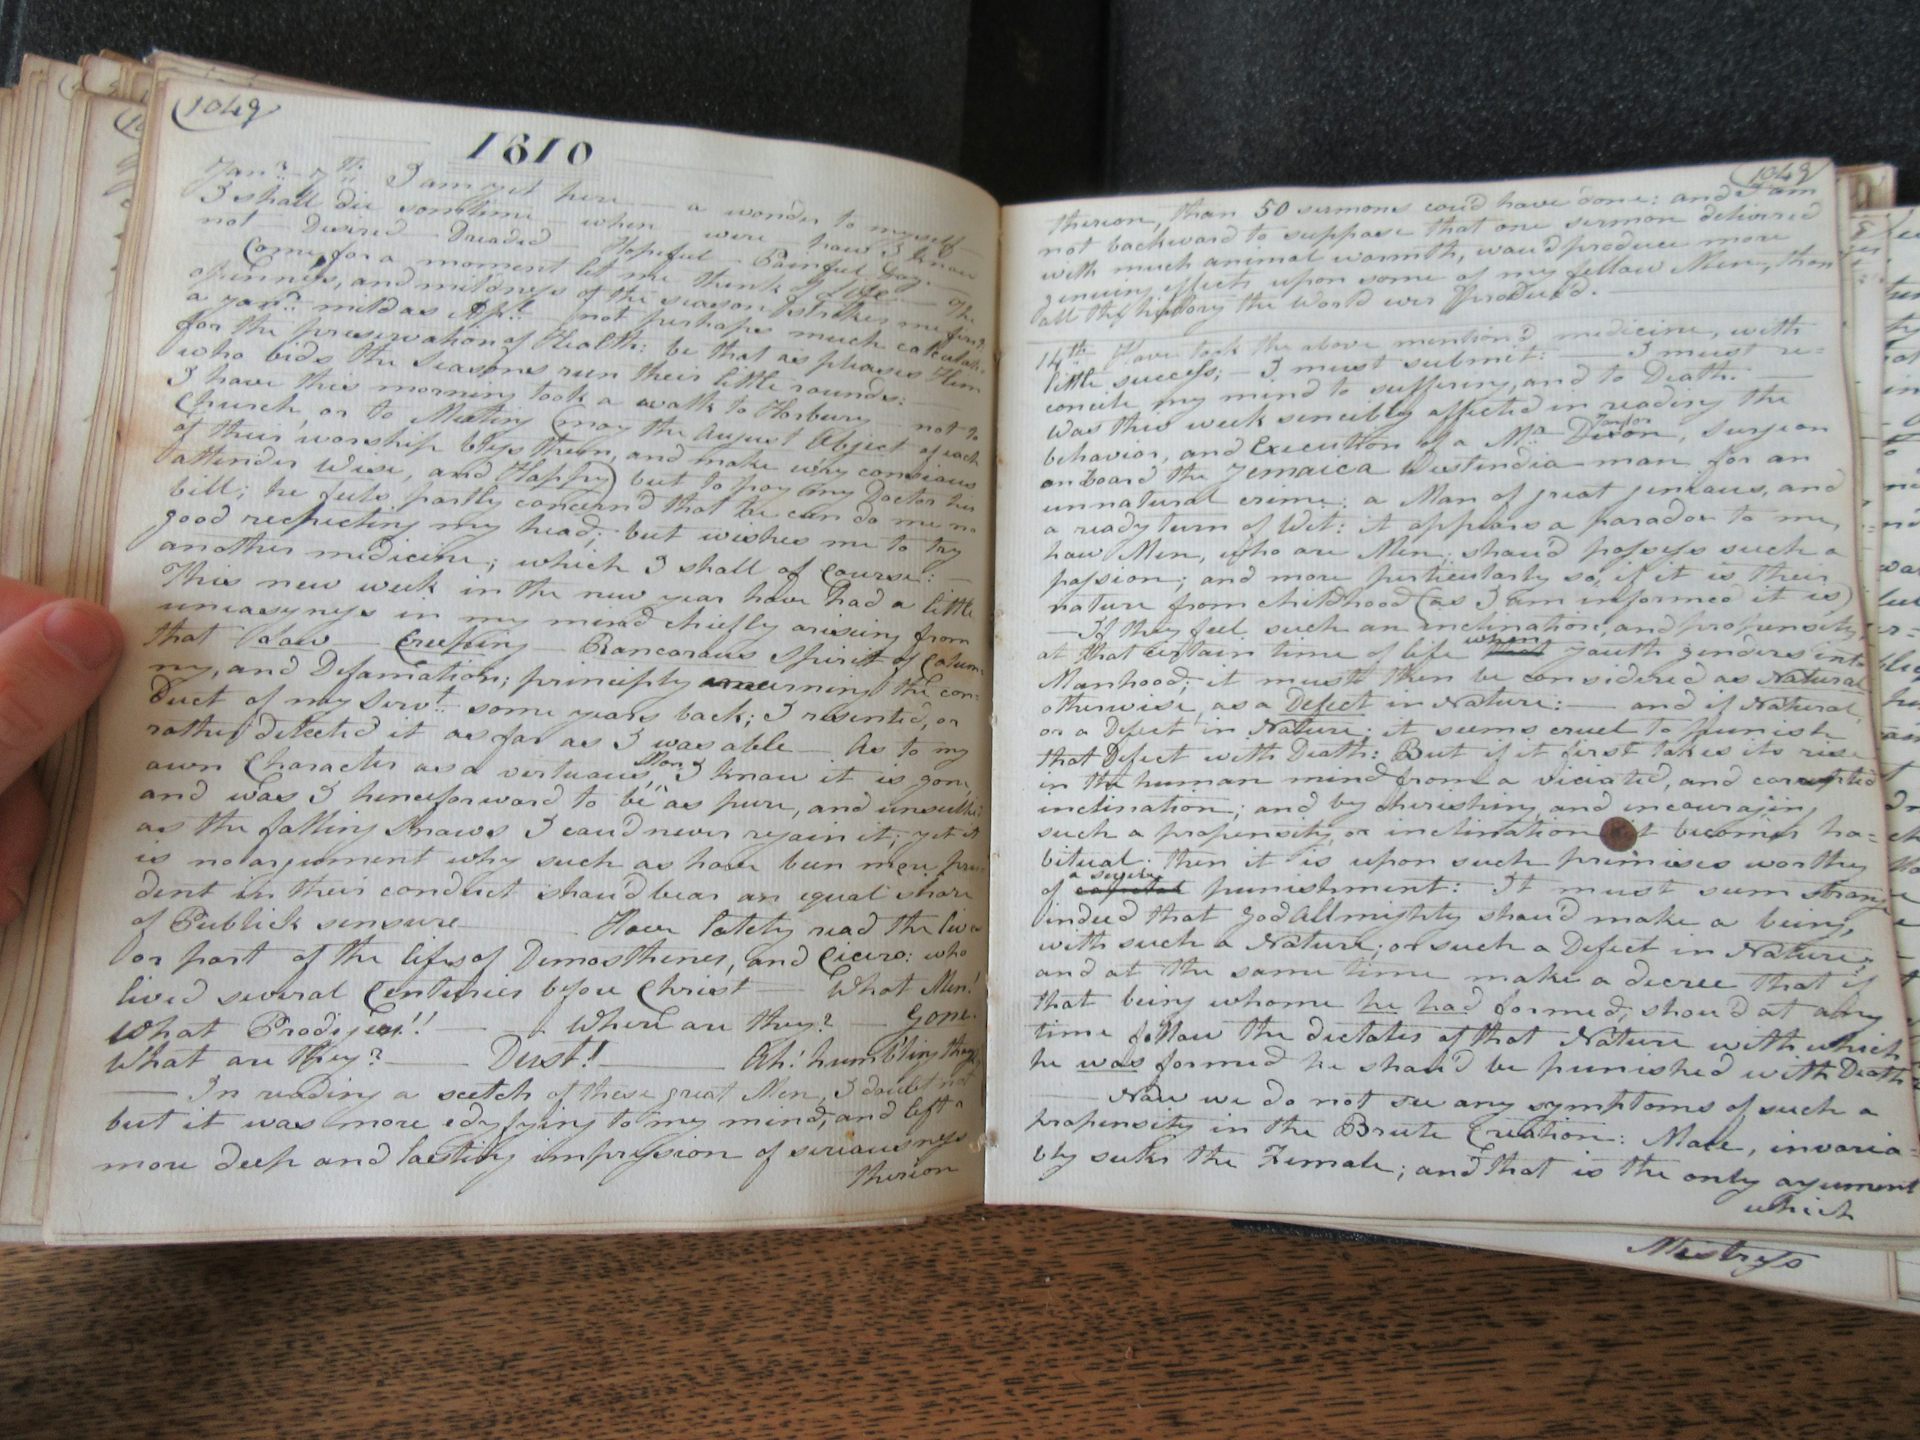 (1049
1810
Jany. 7th. I am yet here — a wonder to myself
I shall die sometime — when — were — how I know
not — Desired — Dreaded — Hopeful — Painful Day. —
Come, for a moment let me think of Life — The
openness, and mildness of the season strikes me first
a Jany. mild as Apl. — not perhaps much calculated
for the preservation of Health: be that as pleases Him
who bids the seasons run their little rounds: —
I have this morning took a walk to Horbury — not to
Church or to Meeting (may the August Object of each
of their worship bless them, and make why consious
attender Wise, and Happy) but to pay my Doctor his
bill; he feels partly concern'd that he can do me no
good respecting my head; but wishes me to try
another medicine; which I shall of Course: —
This new week in the new year have had a little
uneasyness in my mind chiefly ariseing from
that Low — Creeping — Rancorous Spirit of Calum-
ny, and Defamation; principly concerning the con-
duct of my Servt. some years back; I resented, or
rather detected it as far as I was able — As to my
own Character as a virtuous Man I know it is gone,
and was I henceforward to be as pure, and unsullied
as the falling Snows I cou'd never regain it; yet it
is no argument why such as have been more pru-
dent in their conduct shou'd bear an equal share
of Publick sensure — Have lately read the lives
or part of the lifes of Demosthenes, and Cicero; who
lived several Centuries before Christ — What Men!
What Prodigies!! — Where are they? — Gone.
What are they? — Dust! — Ah! humbling thought
— In reading a scetch of these great Men, I doubt not
but it was more edyfying to my mind, and left a
more deep and lasting impression of seriousness
thereon
1049)
thereon, than 50 sermons cou'd have done: and I am
not backward to suppose that one sermon delivered
with much animal warmth, wou'd produce more
genuine effects upon some of my fellow Men, than
all the history the World ever produc'd.
14th. Have took the above mention'd medicine, with
little success; — I must submit: — I must re=
concile my mind to suffering, and to Death. —
Was this week sencibly affected in reading the
behavior, and Execution of a Mr. Dixon, Surgeon
Taylor
on board the Jemaica Westindia-man for an
unnatural crime: a Man of great genious, and
a ready turn of Wit: it appears a paradox to me,
how Men, who are Men, shou'd possess such a
passion; and more perticularly so, if it is their
nature from childhood (as I am informed it is)
— If they feel such an inclination, and propensity,
at that certain time of life when youth genders into
Manhood; it must then be considered as Natural
otherwise, as a Defect in Nature: — and if Natural,
or a Defect in Nature; it seems cruel to punish
that Defect with Death: But if it first takes its rise
in the human mind from a viciated, and corrupted
inclination; and by cherishing and incouraging
such a propensity, or inclination it becomes ha=
bitual: then it is upon such primises worthy
of a severe capital punishment: It must seem strange
indeed that God Allmighty shou'd make a being,
with such a Nature; or such a Defect in Nature;
and at the same time make a decree that if
that being whome he had formed, shou'd at any
time follow the dictates of that Nature with which
he was formed he shou'd be punished with Death
— Now we do not see any symptoms of such a
propensity in the Brute Creation: Male, invaria=
bly seeks the Female; and that is the only argument
which
Mistress